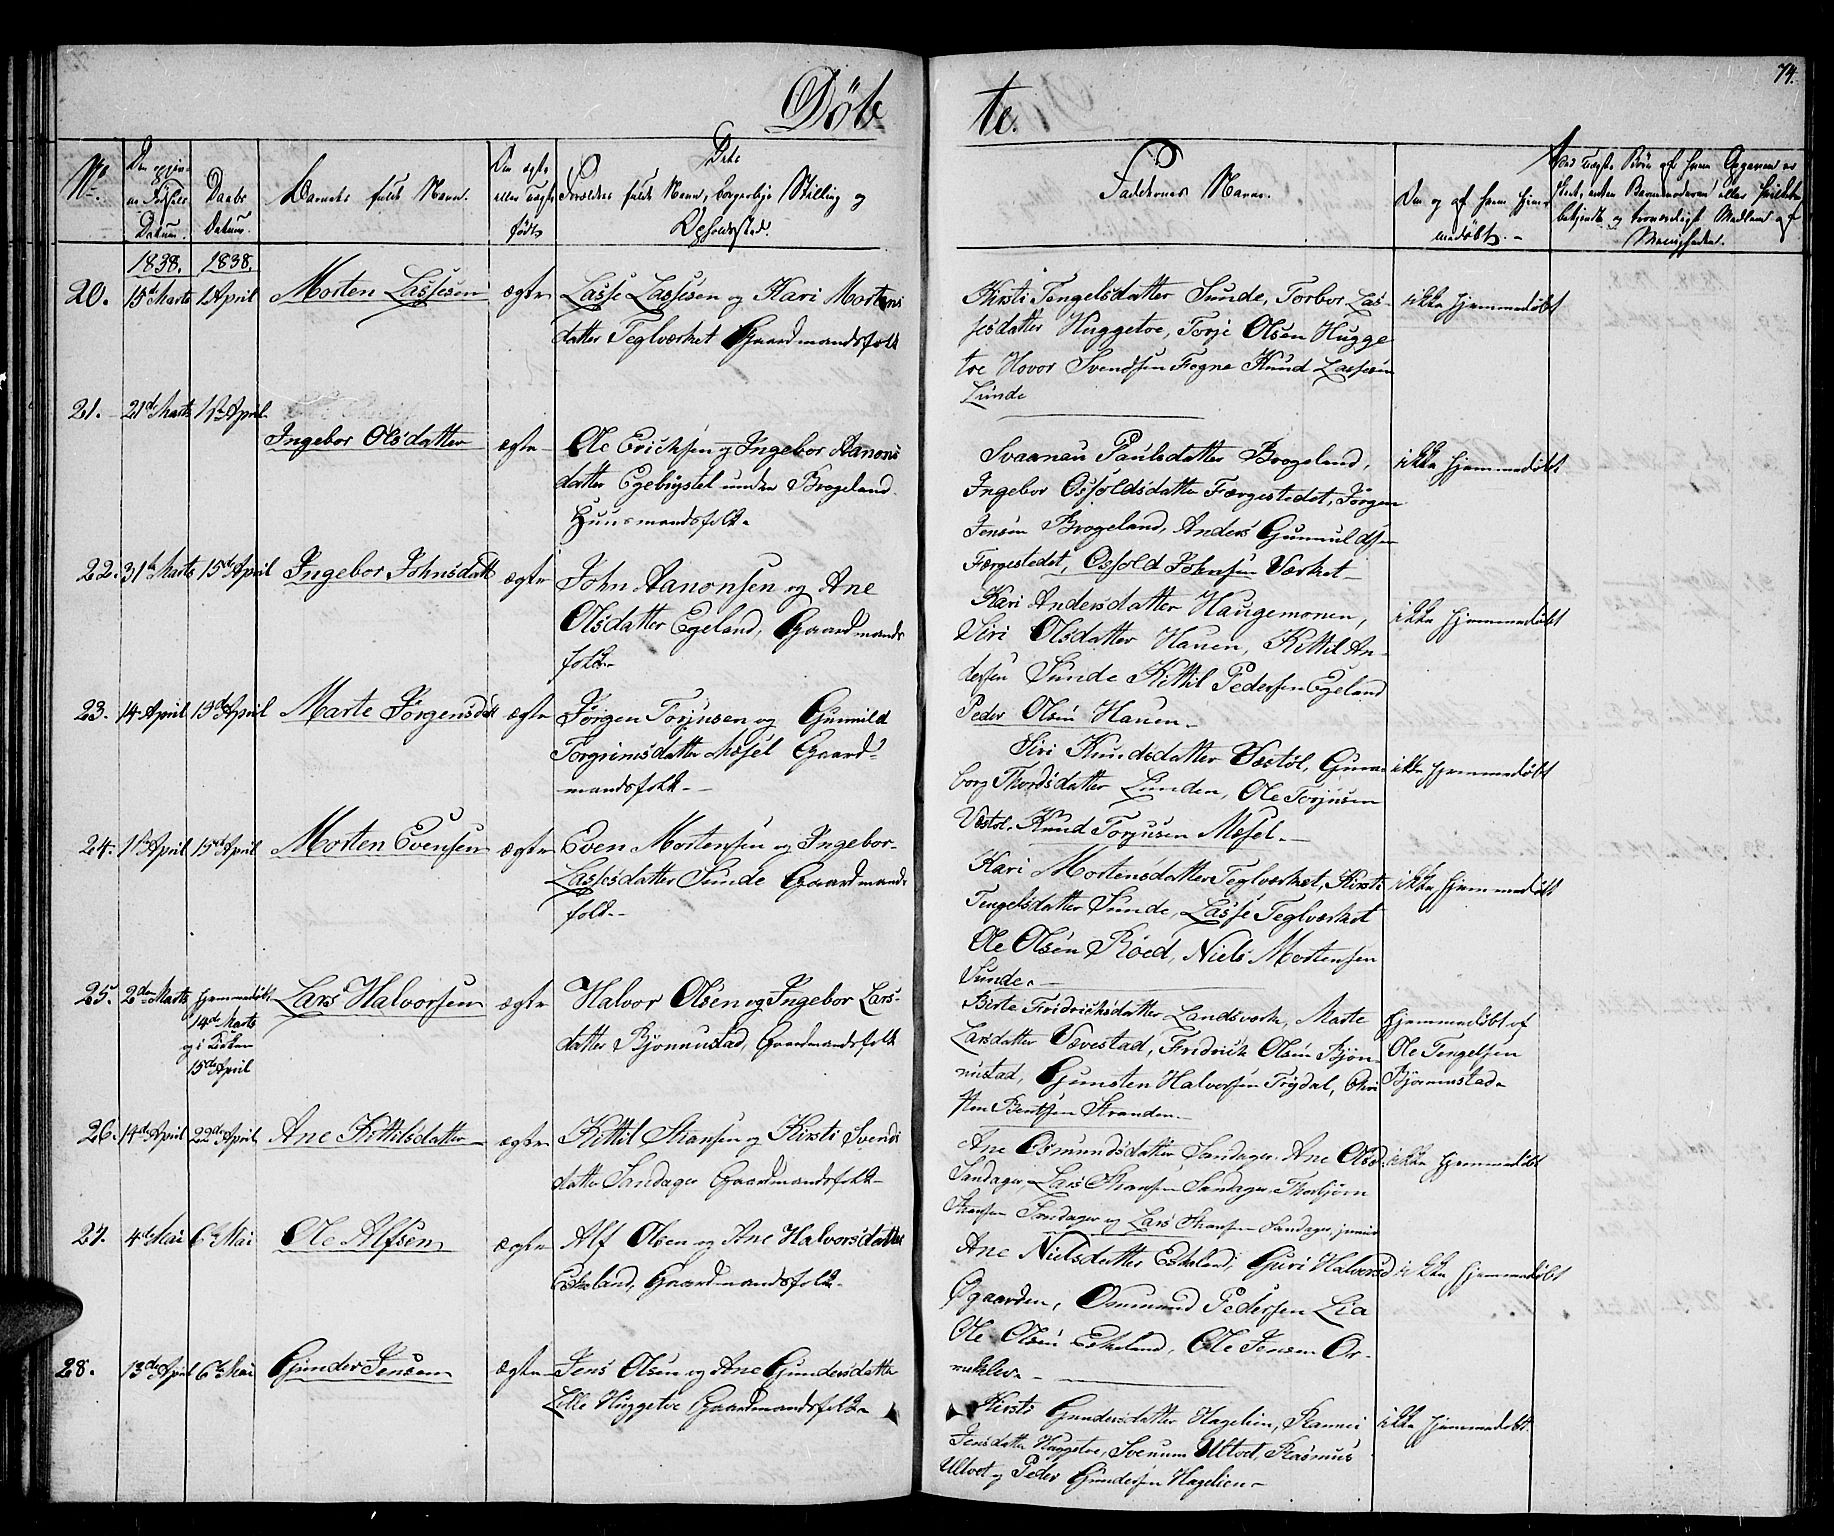 Døbte.
74.
No.
Daabs Datum.
Barnets fulde Navn.
Forældres fulde Navn, borgerlige Stilling og Opholdssted.
Faddernes Navne.
Om og af hvem hjemmedøbt.
1838. 1838.
20. 15de Marts 1 April Morten Lassesen ægte Lasse Lassesen og Kari Mortens
datter Teglværket Gaardmandsfolk
Kirsti Tengelsdatter Sunde, Torbor Las-
sesdatter Huggetve, Torje Olsen Hugge
tve Hovor Svendsen Fogne Knud Lassesen
Lunde
ikke hjemmedøbt
21. 21de Marts April
Ingebor Olsdatter ægte Ole Erichsen og Ingebor Aanons
datter Egebøystel under Brøgeland
Huusmandsfolk
Svaanau Paulsdatter Brøgeland,
Ingebor Osfoldsdatter Færgestedet, Jörgen
Jensen Brøgeland, Anders Gunnuldsen
Færgestedet, Osfold Johnsen Værket
ikke hjemmedøbt
22. 31te Marts 15de April Ingebor Johnsdatt ægte John Aanonsen og Ane
Olsdatter Egeland, Gaardmands
folk
Kari Andersdatter Haugemonen,
Siri Olsdatter Hauen, Kittil An-
dersen Sunde Kittil Pedersen Egeland
Peder Olsen Hauen
ikke hjemmedøbt
23. 14 April April Marte Jørgensdatt ægte Jørgen Torjusen og Gunnild
Torgrimsdatter Mosel Gaard-
mandsfolk
Siri Knudsdatter Væstöl, Gun-
borg Thordsdatter Lunden, Ole Torjusen
Vestöl. Knud Torjusen Mosel.
ikke hjemmedøbt
24. April 15de April Morten Evensen ægte Even Mortensen og Ingebor
Lassesdatter Sunde Gaardmands
folk
Kari Mortensdatter Teglværket, Kirsti
Tengelsdatter Sunde, Lasse Teglværket
Ole Olsen Röed, Niels Mortensen
Sunde.
ikke hjemmedøbt
25. 2den Marts hjemmedøbt
14de Marts
og i Kirken
15de April
Lars Halvorsen ægte Halvor Olsen og Ingebor Lars-
datter Bjonnustad, Gaardmandsfolk
Birte Fridrichsdatter Landsverk, Marte
Larsdatter Vævestad, Fridrick Olsen Bjøn-
nustad, Gunsten Halvorsen Frydal, Chri
sten Bentsen Stranden
hjemmedøbt af
Ole Tengelsen
Bjørnnustad
26. 14de April 22de April Ane Kittilsdatter ægte Kittil Stiansen og Kirsti Svends
datter Sandager Gaardmandsfolk
Ane Osmundsdatter Sandager, Ane Olsd.
Sandager, Lars Stiansen Sandager, Thorbjørn
Stiansen Sandager og Lars Stiansen Sandager, junior
ikke hjemmedøbt
27. 4de Mai 6te Mai Ole Alfsen ægte Alf Olsen og Ane Halvorsdatter
Eskeland, Gaardmandsfolk
Ane Nielsdatter Eskeland, Guri Halvorsd
Øgaarden, Osmund Pedersen Lia
Ole Olsen Eskeland, Ole Jensen Or-
mekler
ikke hjemmedøbt
28. 13de April 6te Mai Gunder Jensen ægte Jens Olsen og Ane Gundersdatter
Lille Huggetve Gaardmandsfolk
Kirsti Gundersdatter Hagelien,
Jensdatter Huggetve, Svenum Ultvet, Rasmus
Ultvet og Peder Gundersen Hagelien
ikke hjemmedøbt.